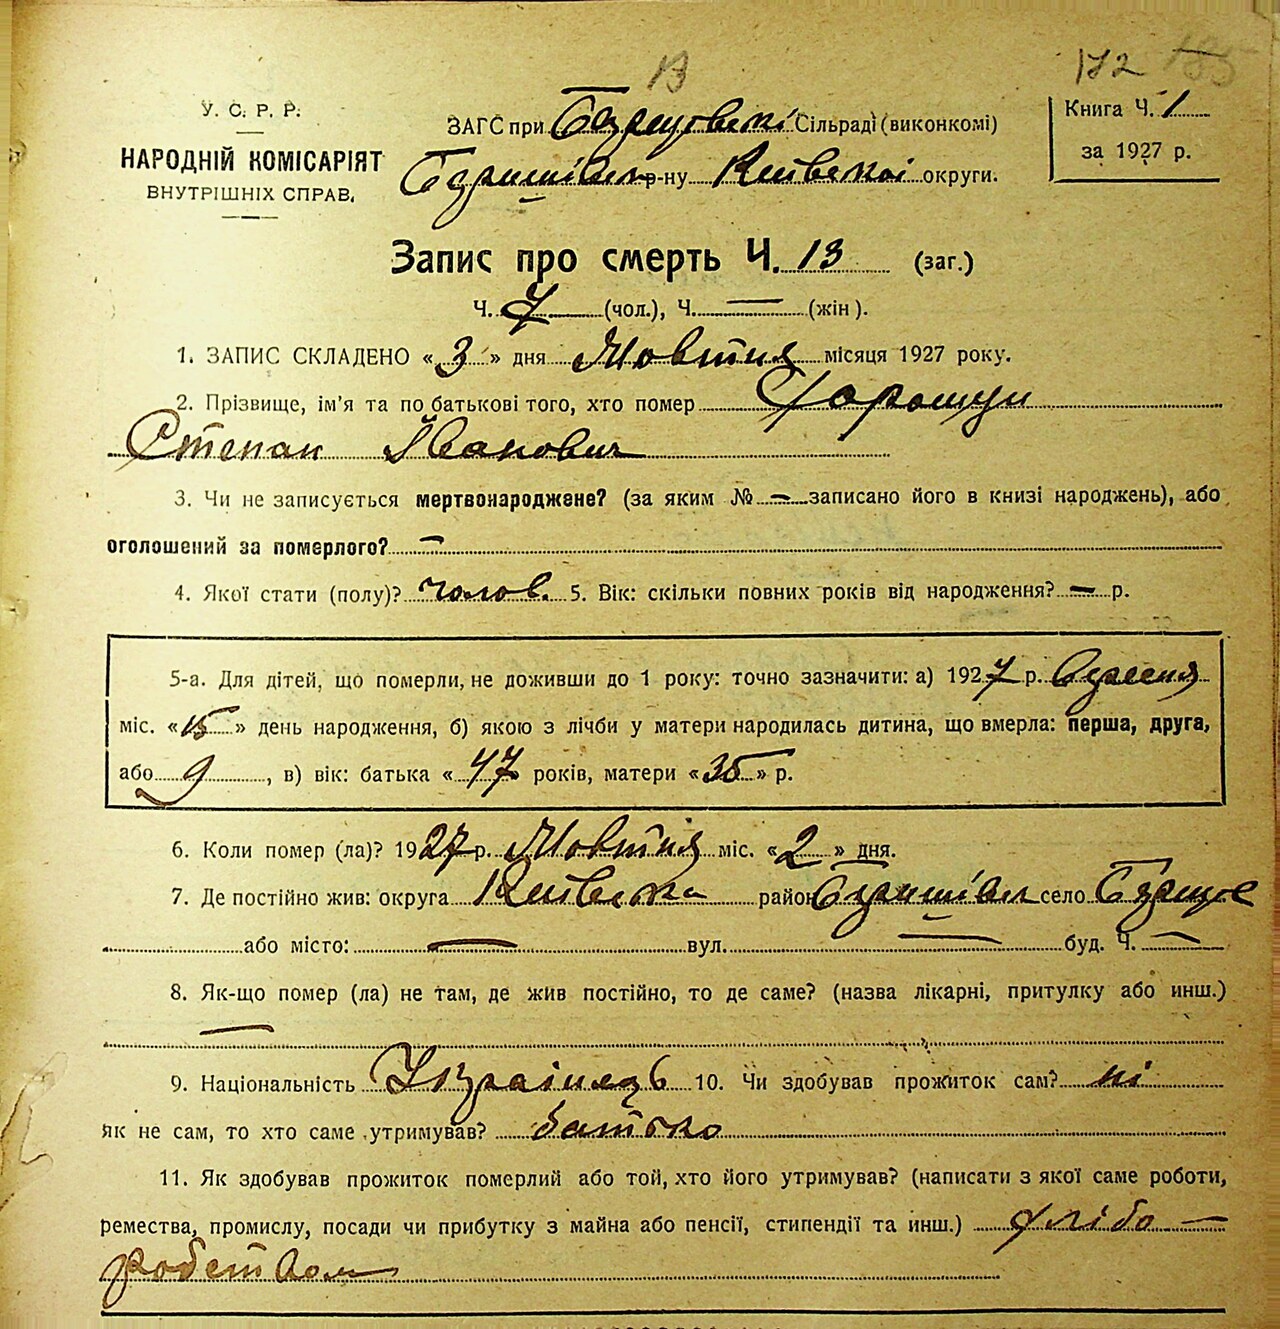 13
172
У. С. Р. Р.
НАРОДНІЙ КОМІСАРІЯТ
ВНУТРІШНІХ СПРАВ.
ЗАГС при Сільраді (виконкомі)
р-ну Київської округи.
Книга Ч. 1
за 1927 р.
Запис про смерть Ч. 13 (заг.)
Ч. 7 (чол.), Ч. — (жін).
1. ЗАПИС СКЛАДЕНО « 3 » дня Жовтня місяця 1927 року.
2. Прізвище, ім'я та по батькові того, хто помер
Степан Іванович
3. Чи не записується мертвонароджене? (за яким № — записано його в книзі народжень), або
оголошений за померлого? —
4. Якої стати (полу)? чолов. 5. Вік: скільки повних років від народження? — р.
5-а. Для дітей, що померли, не доживши до 1 року: точно зазначити: а) 1927 р. Серпня
міс. « 15 » день народження, б) якою з лічби у матери народилась дитина, що вмерла: перша, друга,
або 9, в) вік: батька « 47 » років, матери « 35 » р.
6. Коли помер (ла)? 1927 р. Жовтня міс. « 2 » дня.
7. Де постійно жив: округа Київська район село
або місто: — вул. — буд. Ч. —
8. Як-що помер (ла) не там, де жив постійно, то де саме? (назва лікарні, притулку або инш.)
—
9. Національність Українець 10. Чи здобував прожиток сам? ні
Як не сам, то хто саме утримував? батько
11. Як здобував прожиток померлий або той, хто його утримував? (написати з якої саме роботи,
ремества, промислу, посади чи прибутку з майна або пенсії, стипендії та инш.) хлібо —
робством